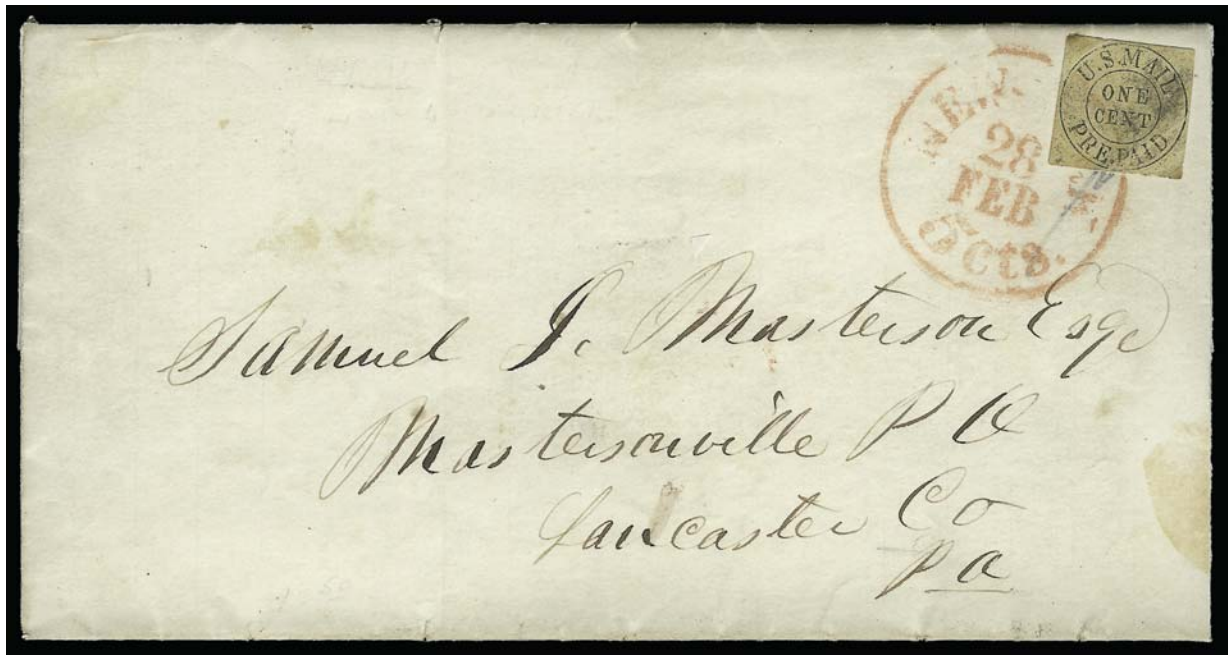 U.S.MAIL
ONE
CENT
PRE.PAID
NEW
28
FEB
5 cts.
Samuel J. Masterson Esqr
Mastersonville P O
Lancaster Co
Pa